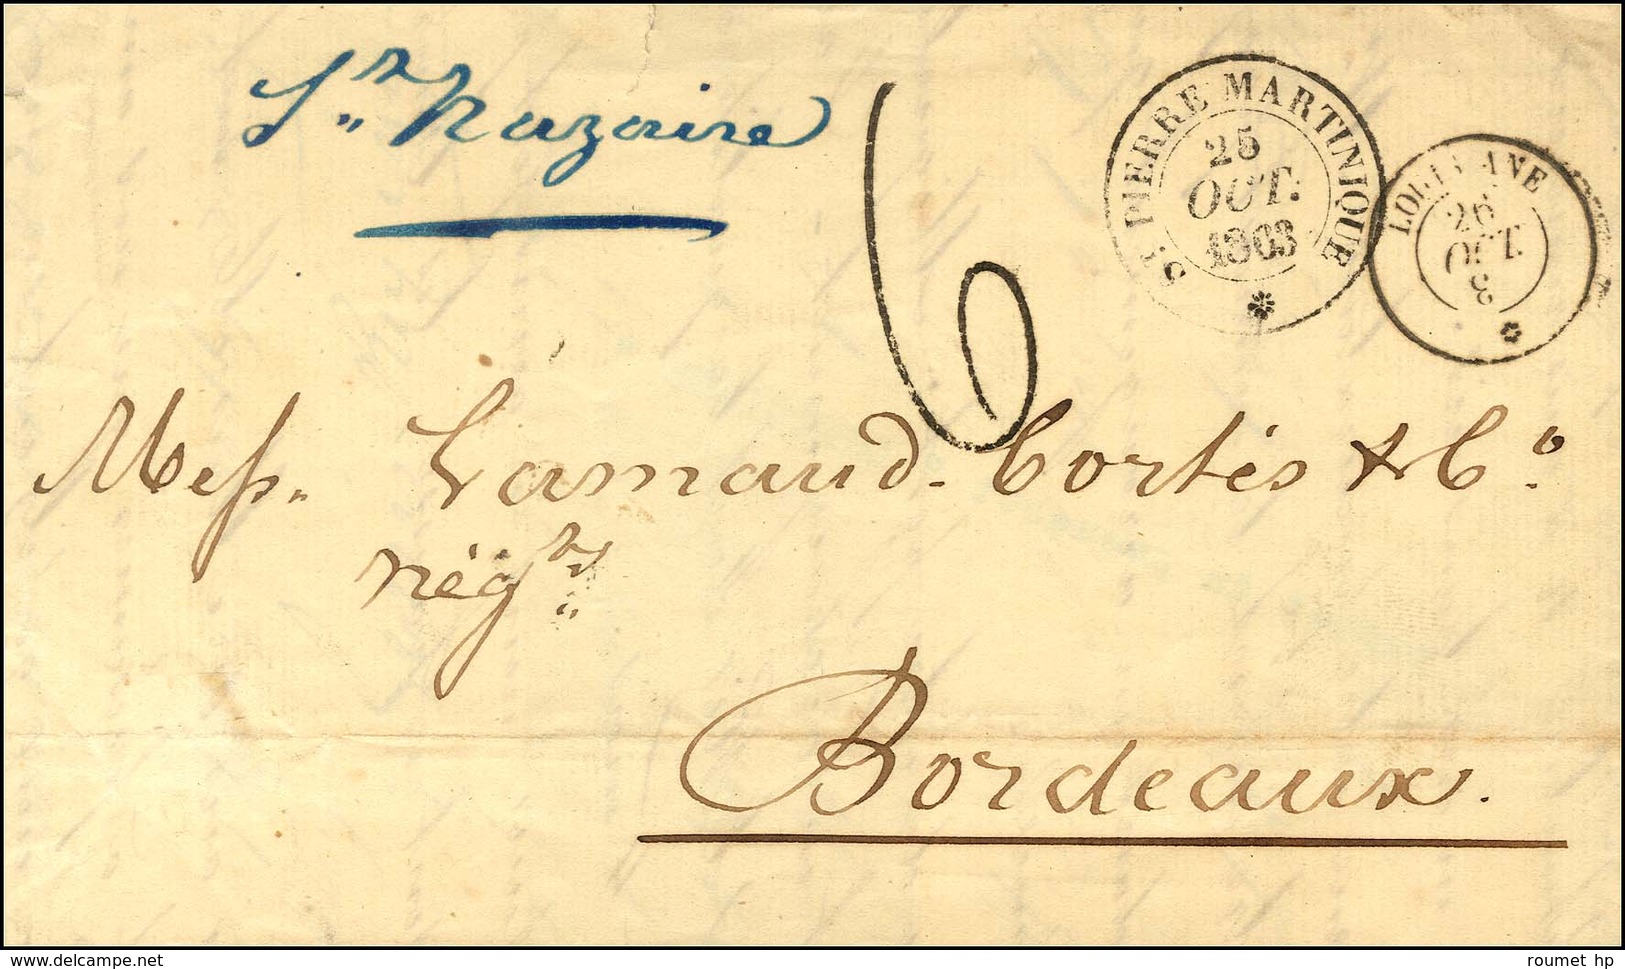 St. Nazaire
6
ST. PIERRE MARTINIQUE
25
OCT.
1863
LOUISIANE
26
OCT.
Mess. Lamaud. Cortès & Co.
négts.
Bordeaux.
roumet hp